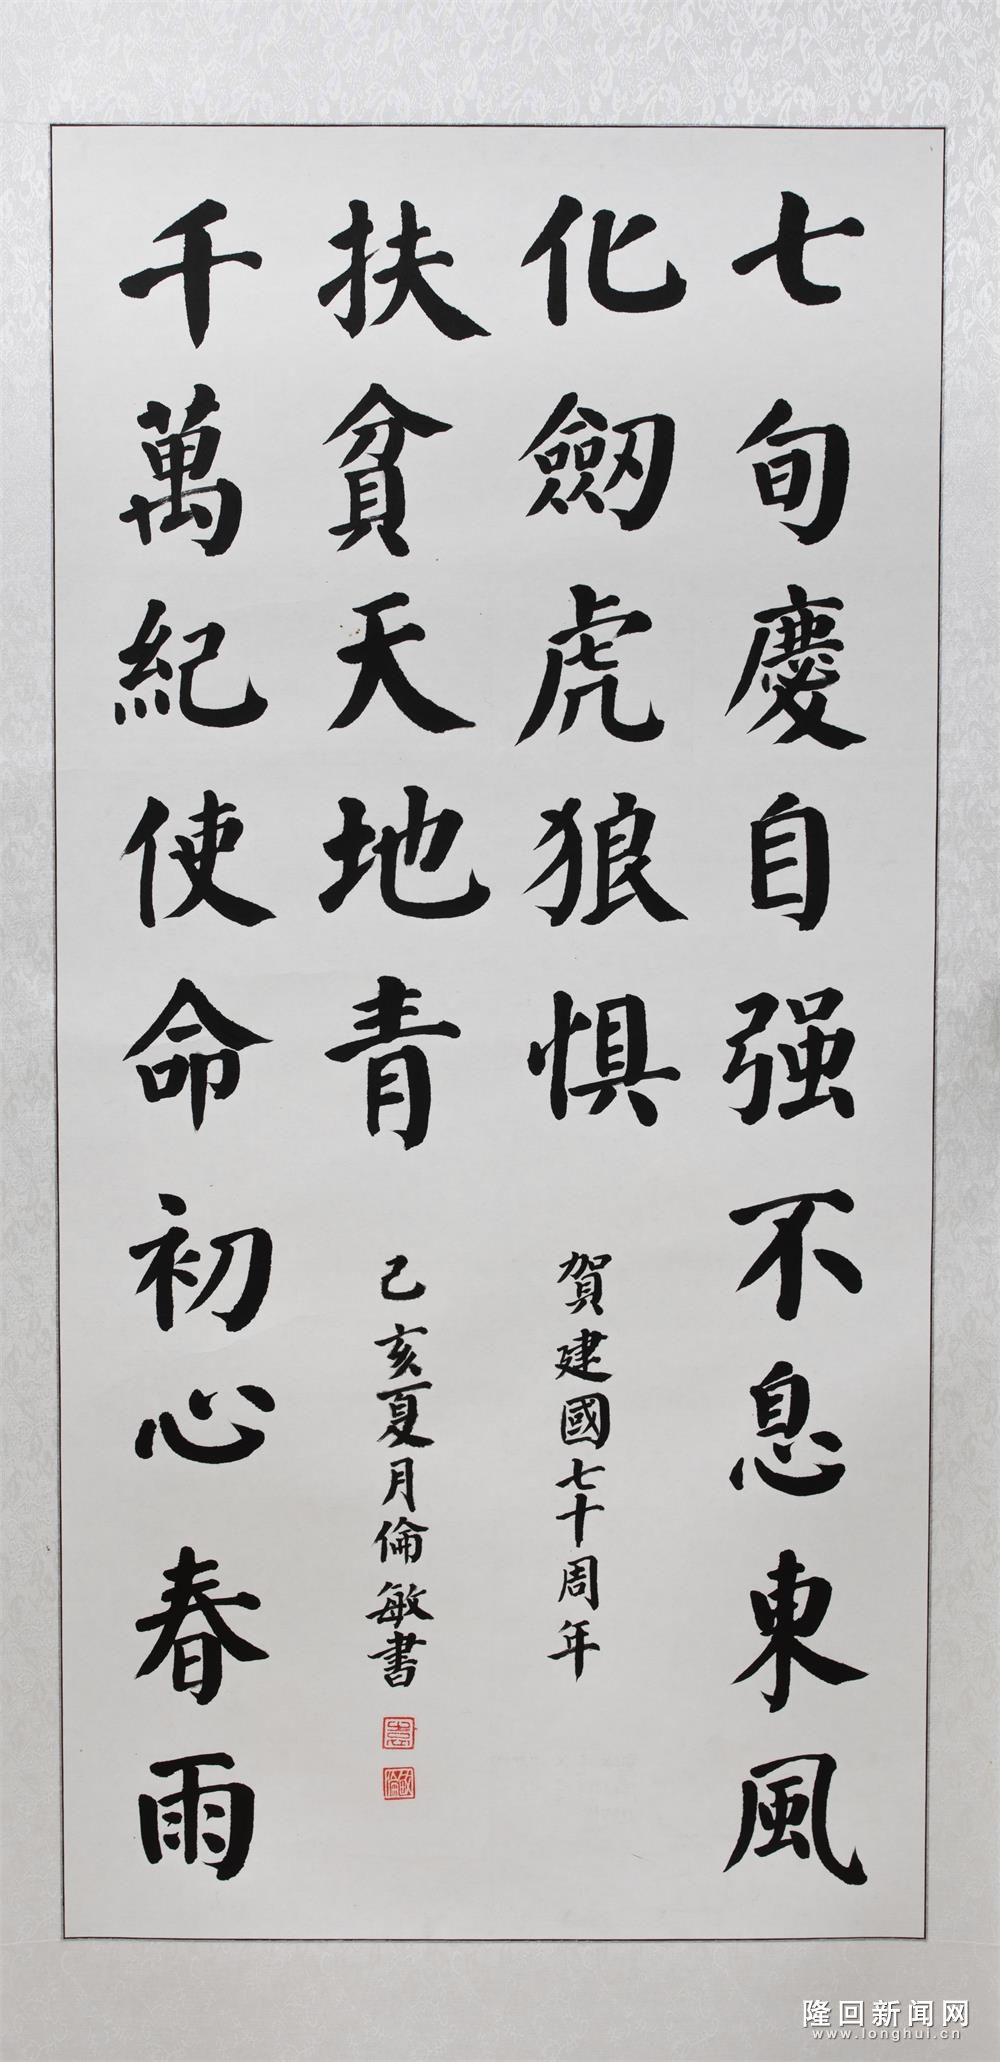 七旬慶自强不息東風
化劔虎狼懼
賀建國七十周年
千萬紀使命初心春雨
扶貧天地青
己亥夏月倫敏書
隆回新闻网
www.longhui.cn